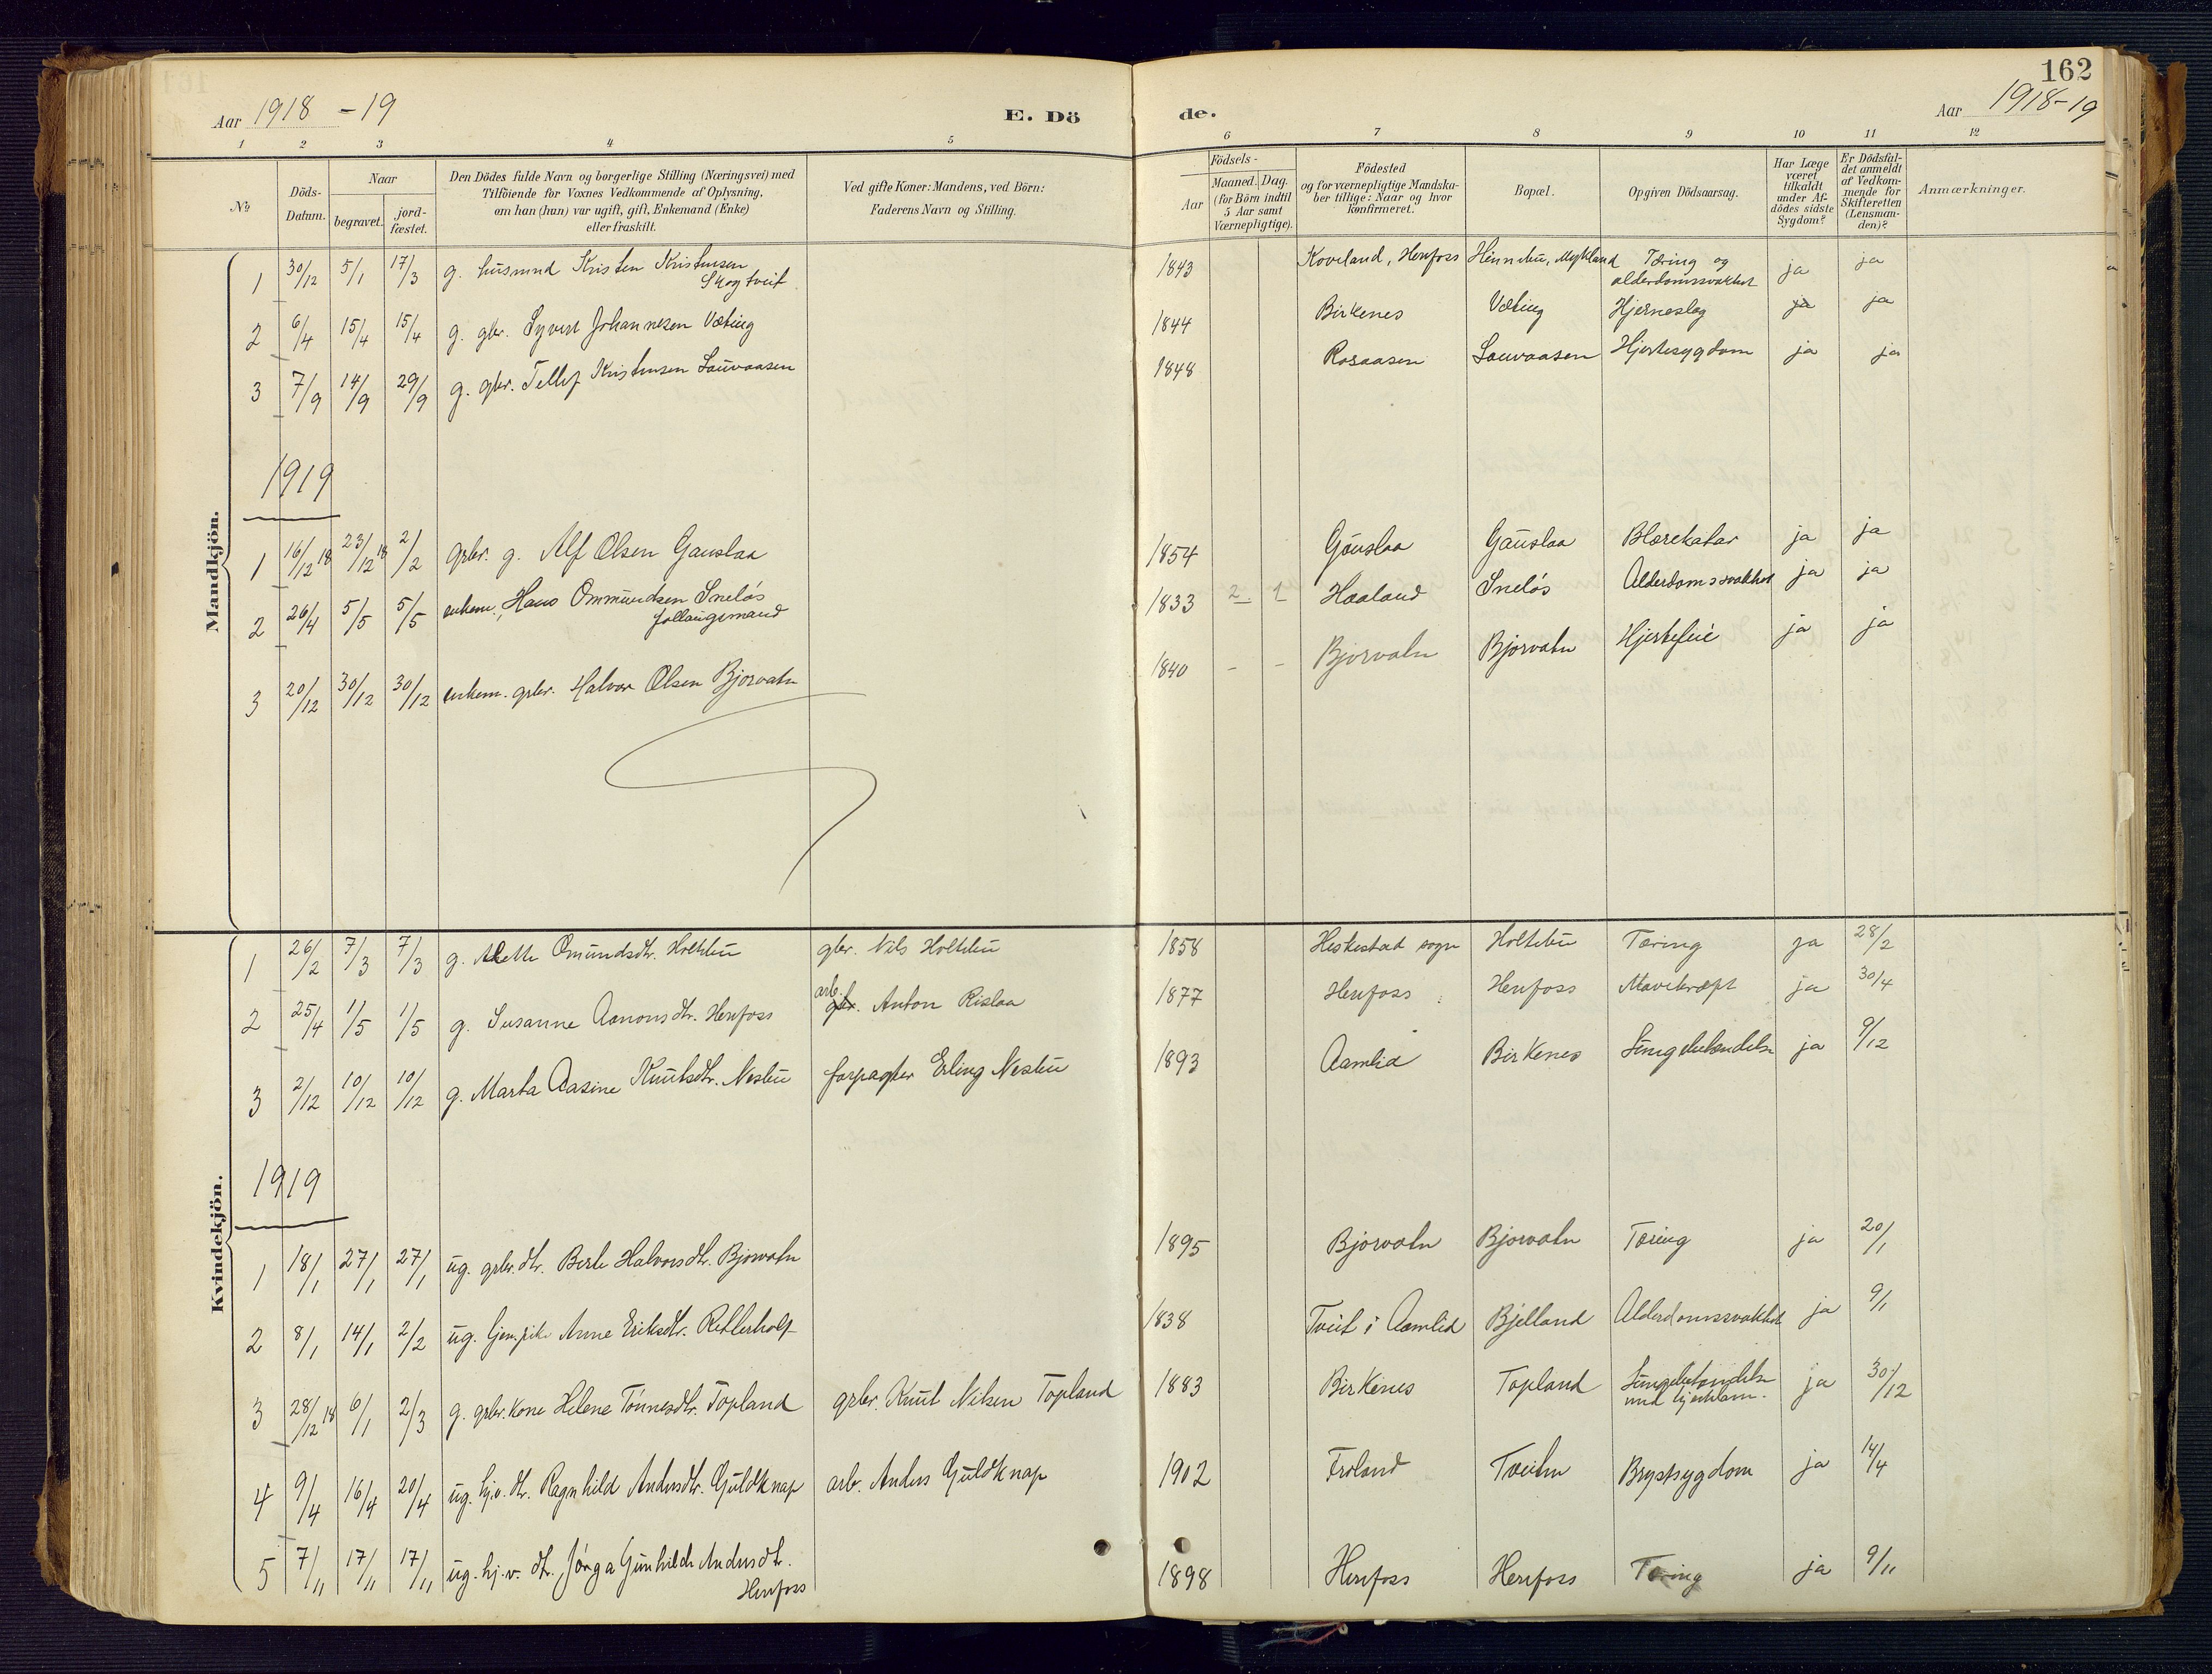 162
Aar 1918-19
E. Dö
de.
Aar 1918-19
1 2 3 4 5 6 7 8 9 10 11 12
№ Döds-Datum. Naar begravet. jord-fæstet.
Den Dödes fulde Navn og borgerlige Stilling (Næringsvei) med
Tilföiende for Voxnes Vedkommende af Oplysning,
om han (hun) var ugift, gift, Enkemand (Enke)
eller fraskilt.
Ved gifte Koner: Mandens, ved Börn:
Faderens Navn og Stilling.
Födsels-
Aar Maaned. Dag.
(for Börn indtil
5 Aar samt
Værnepligtige).
Födested
og for værnepligtige Mandska-
ber tillige: Naar og hvor
konfirmeret.
Bopæl.
Opgiven Dödsaarsag.
Har Læge
været
tilkaldt
under Af-
dödes sidste
Sygdom?
Er Dödsfal-
det anmeldt
af Vedkom-
mende for
Skifteretten
(Lensman-
den)?
Anmærkninger.
Mandkjön.
1 30/12 5/1 17/3 g. husmnd Kristen Kristensen Skogtveit 1843 Koveland, Herefoss Mykland Tæring og alderdomssvakhet ja ja
2 6/4 15/4 15/4 g. gbr. Syvert Johannesen Væting 1844 Birkenes Væting Hjerneslag ja ja
3 7/9 14/9 29/9 g. gbr. Tellef Kristensen Lauvaasen 1848 Rosaasen Lauvaasen Hjertesygdom ja ja
1919
1 16/12 18 23/12 18 2/2 grbr. g. Alf Olsen Gauslaa 1854 Gauslaa Gauslaa Blærekatar ja ja
2 26/4 5/5 5/5 enkem. Hans Ommundsen Sneløs follaugsmand 1833 2 1 Haaland Sneløs Alderdomssvakhet ja ja
3 20/12 30/12 30/12 enkem. grbr. Halvor Olsen Bjorvatn 1840 - - Bjorvatn Bjorvatn Hjertefeil ja ja
Kvindekjön.
1 26/2 7/3 7/3 g. Alette Omundsdtr. Holtebu gbr. Nils Holtebu 1858 Heskestad sogn Holtebu Tæring ja 28/2
2 25/4 1/5 1/5 g. Susanne Aanonsdtr. Herefoss arb. gbr. Anton Rislaa 1877 Herefoss Herefoss Mavekræft ja 30/4
3 2/12 10/12 10/12 g. Marta Aasine Knutsdtr. Nesbu forpagter Erling Nesbu 1893 Aamlid Birkenes Lungebetændelse ja 9/12
1919
1 18/1 27/1 27/1 ug. grbr. dtr. Berte Halvorsdtr. Bjorvatn 1895 Bjorvatn Bjorvatn Tæring ja 20/1
2 8/1 14/1 2/2 ug. tjen.pike Anne Eriksdtr. Retterholt 1838 Tveit i Aamlid Bjelland Alderdomssvakhet ja 9/1
3 28/12 18 6/1 2/3 g. grbr. kone Helene Tønnesdtr. Topland grbr. Knut Nilsen Topland 1883 Birkenes Topland Lungebetændelse med hjertelam. ja 30/12
4 9/4 16/4 20/4 ug. hj.v. dtr. Ragnhild Andersdtr. Guldknap arb. Anders Guldknap 1902 Froland Tveiten Brystsygdom ja 14/4
5 7/11 17/11 17/11 ug. hj.v. dtr. Jørga Gunhilde Andersdtr. Herefoss 1898 Herefoss Herefoss Tæring ja 9/11